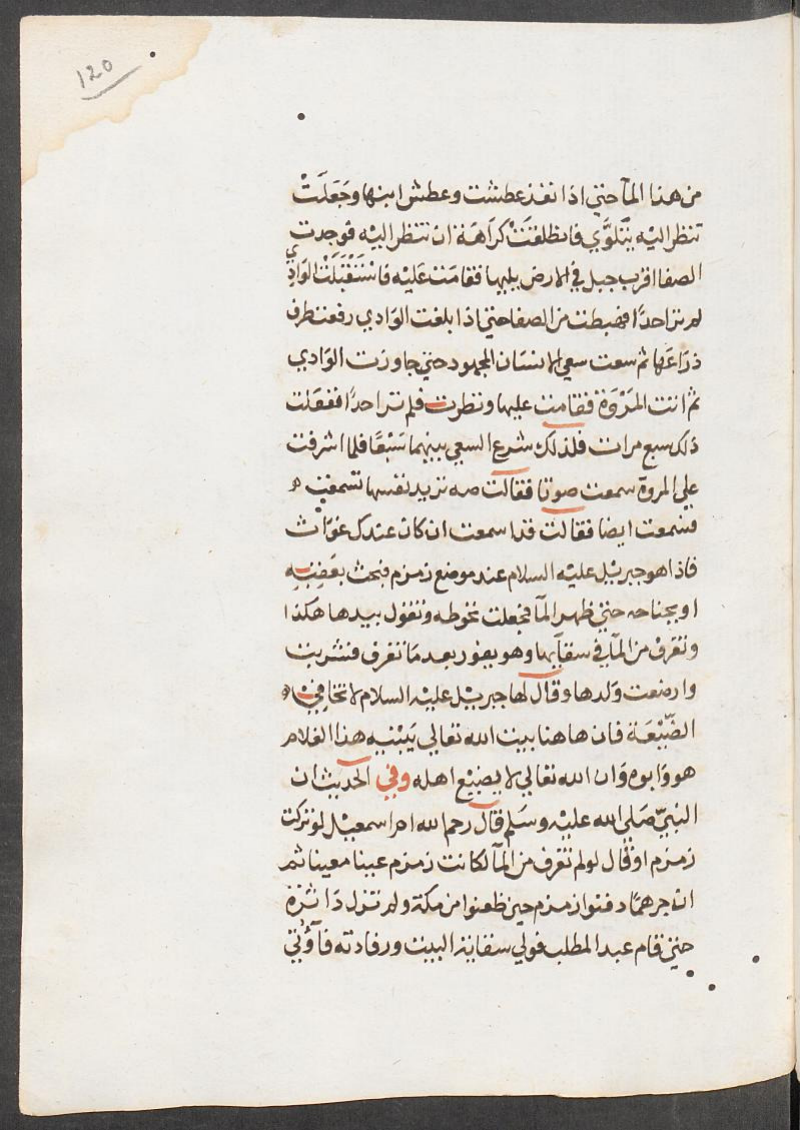 120
من هذا المآ حتي اذا نفذ عطشت وعطش ابنها وجَعَلَتْ
تنظر اليْه يَتَلَوَّي فانطلقَتْ كرَاهَة ان تنظر اليْه فوجدت
الصفا اقرب جبل في الارض يليها فقامَت عَليْه فاسْتَقْبَلَت الوَادِي
لم تر احدًا فهبطت من الصفا حتي اذا بلغت الوَادي رفعت طرف
ذرَاعَها ثم سعت سعي الانسَان المجهود حتي جاوزت الوَادي
ثم اتت المَرْوَة فقامت عليها ونظرت فلم تر احدًا ففعَلت
ذلك سبع مرات فلذلك شرع السعي بينهما سَبْعًا فلما اشرفت
علي المروة سمعت صوتا فقالت صه تريد نفسها تسمعت
فسمعت ايضا فقالت قد اسمعت ان كان عندك غوَاث
فاذا هو جبريْل عليْه السلام عند موضع زمزم فبحث بعَقِبِه
او بجناحه حتي ظهر المآ فجعلت تحوطه وتقول بيدها هكذا
وتغرف من المآ في سقآيها وهو يفور بعد مَا تغرف فشربت
وارضعت وَلدها وقال لها جبريْل عليْه السلام لا تخافي
الضَّيْعَة فان هاهنا بيت الله تعالي يَبْنيه هذا الغلام
هو وَابوه وَان الله تعالي لا يضيّع اهله وفي الحَديث ان
النبيّ صَلي الله عليْه وسَلم قال رحم الله ام اسمعيْل لو تركت
زمزم او قال لو لم تغرف من المآ لكانت زمزم عينا معينا ثم
ان جرهمًا دفنوا زمزم حين ظعنوا من مكة ولم تزل دَاثرة
حتي قام عبد المطلب فولي سقاية البيت ورفادته فاُوُتي